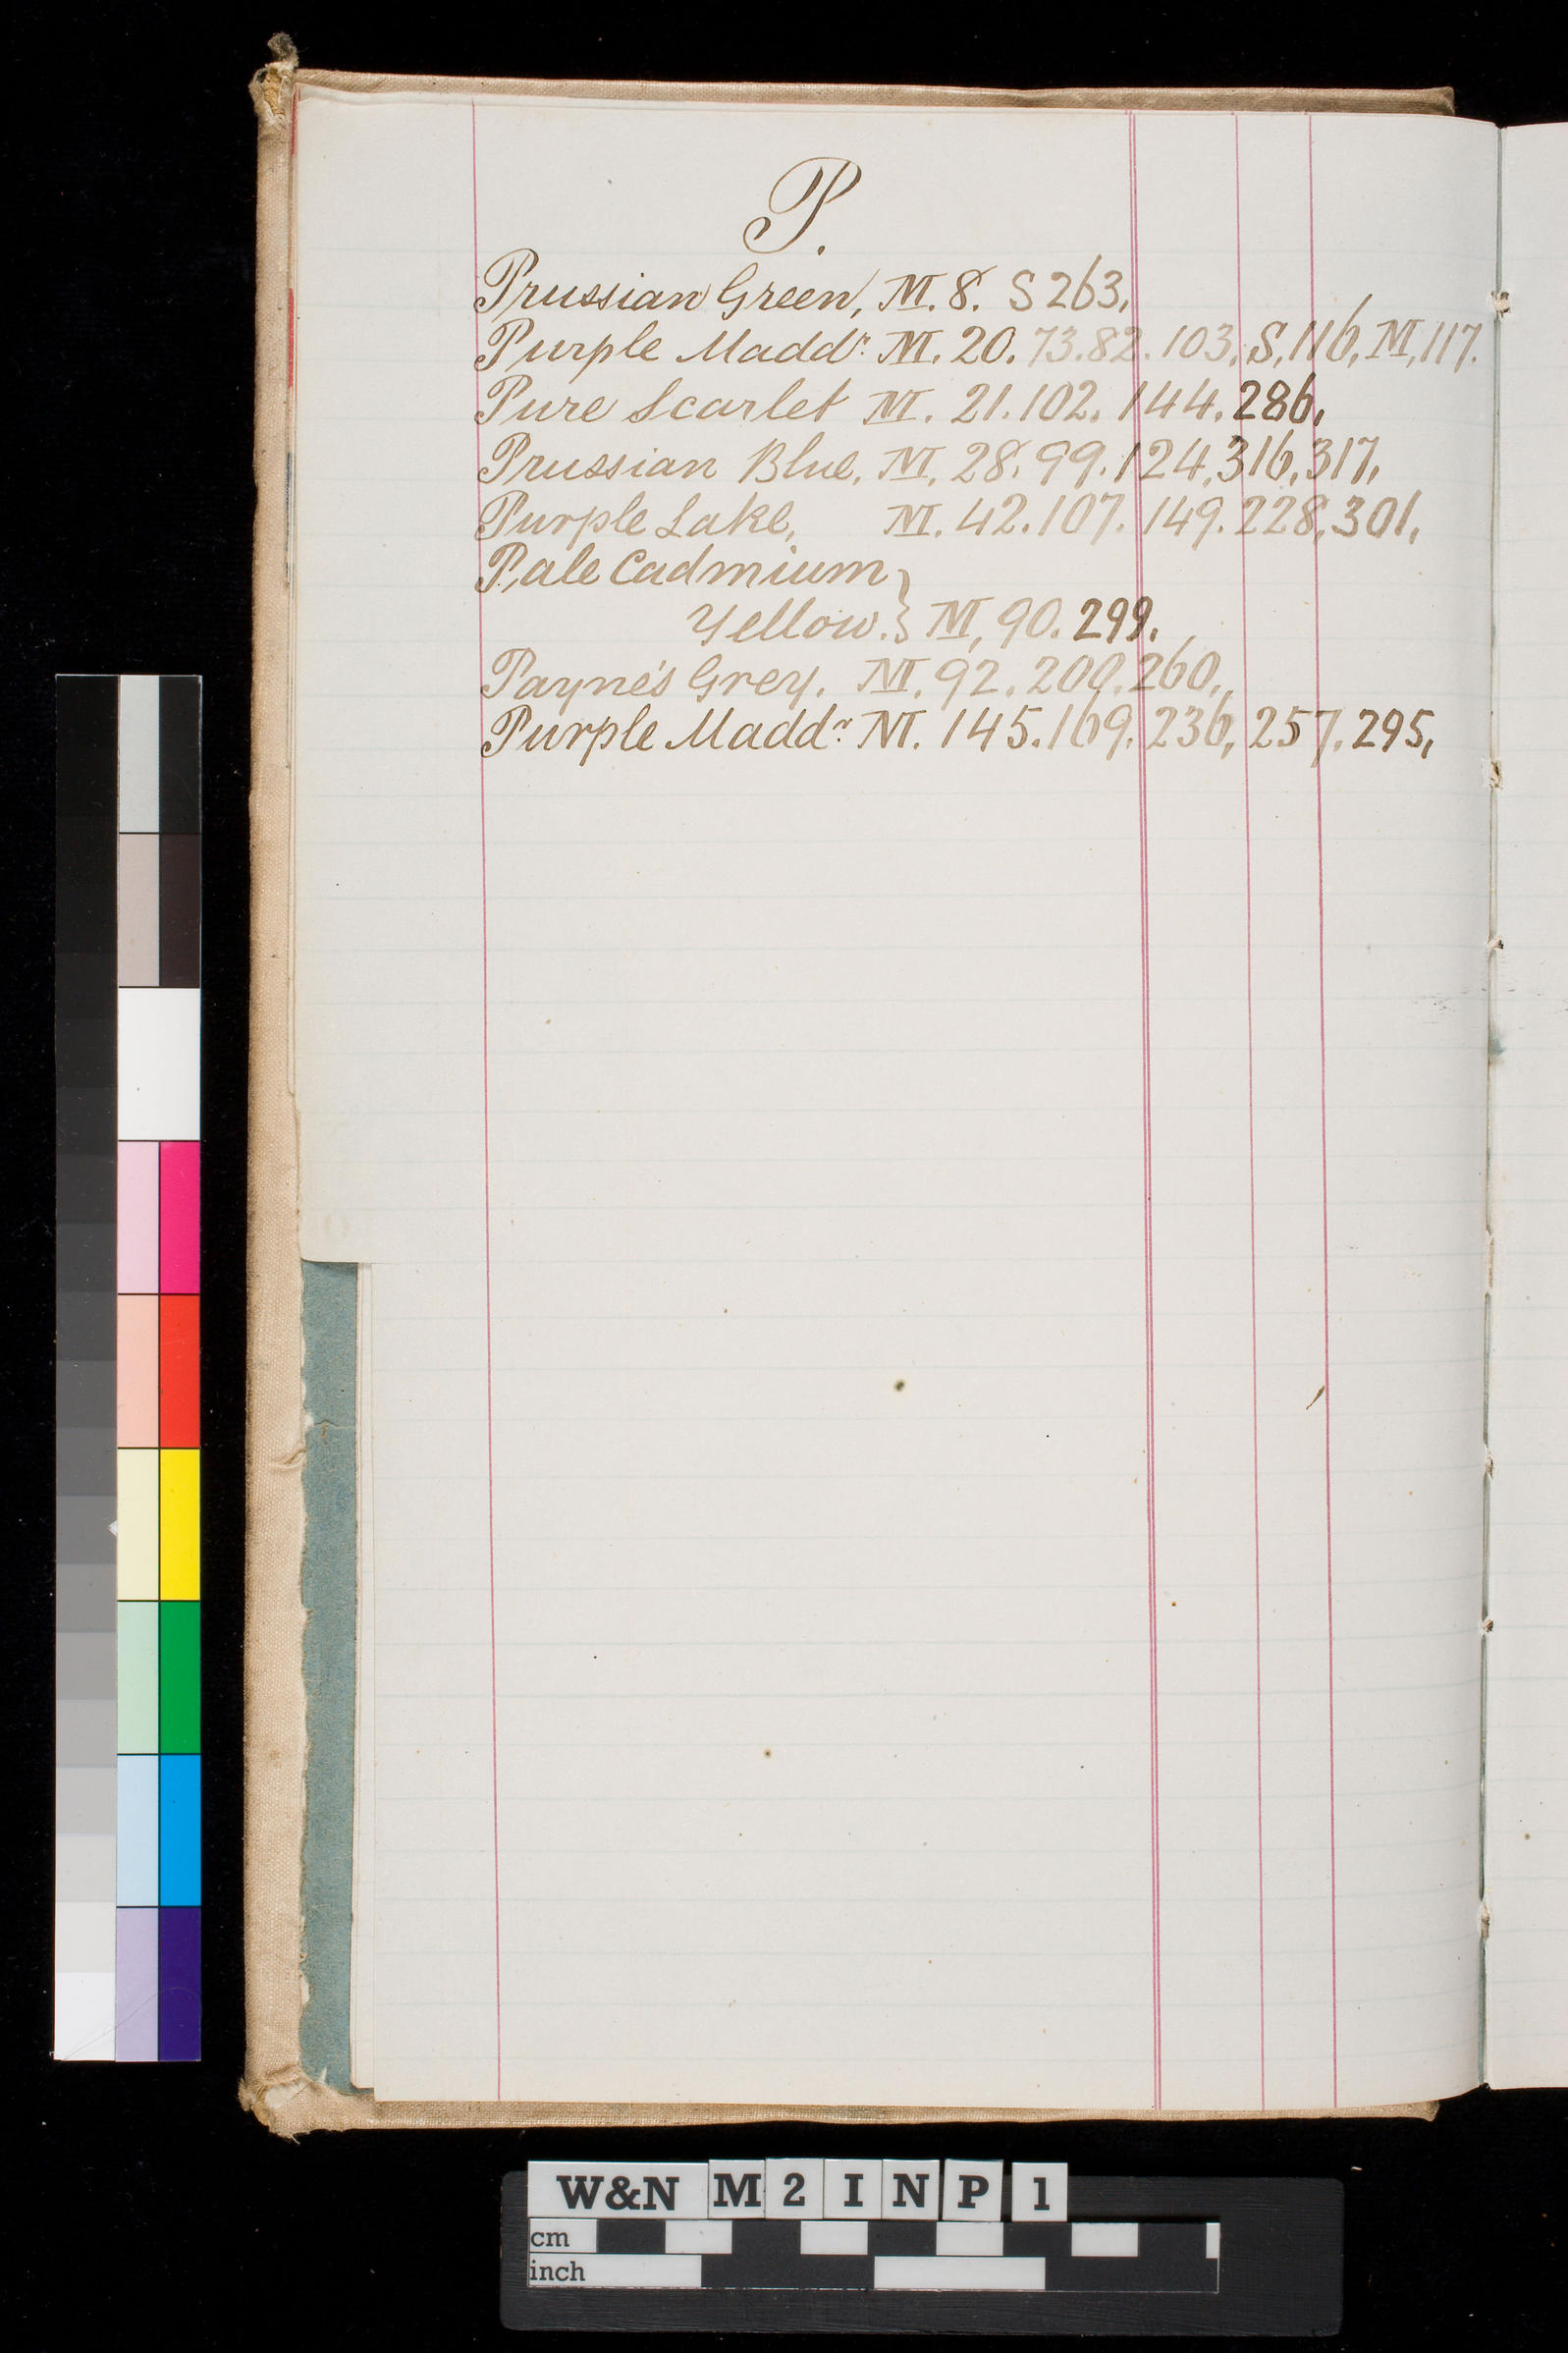 P.
Prussian Green, M. 8. S 263,
Purple Maddr. M. 20. 73. 82. 103, S, 116, M, 117.
Pure Scarlet M. 21. 102. 144. 286,
Prussian Blue, M, 28. 99. 124, 316, 317,
Purple Lake, M. 42. 107. 149. 228, 301,
Pale Cadmium
Yellow. } M, 90. 299.
Payne's Grey. M. 92. 200. 260,
Purple Maddr. M. 145. 169. 236, 257. 295,
W&N M 2 I N P 1
cm
inch